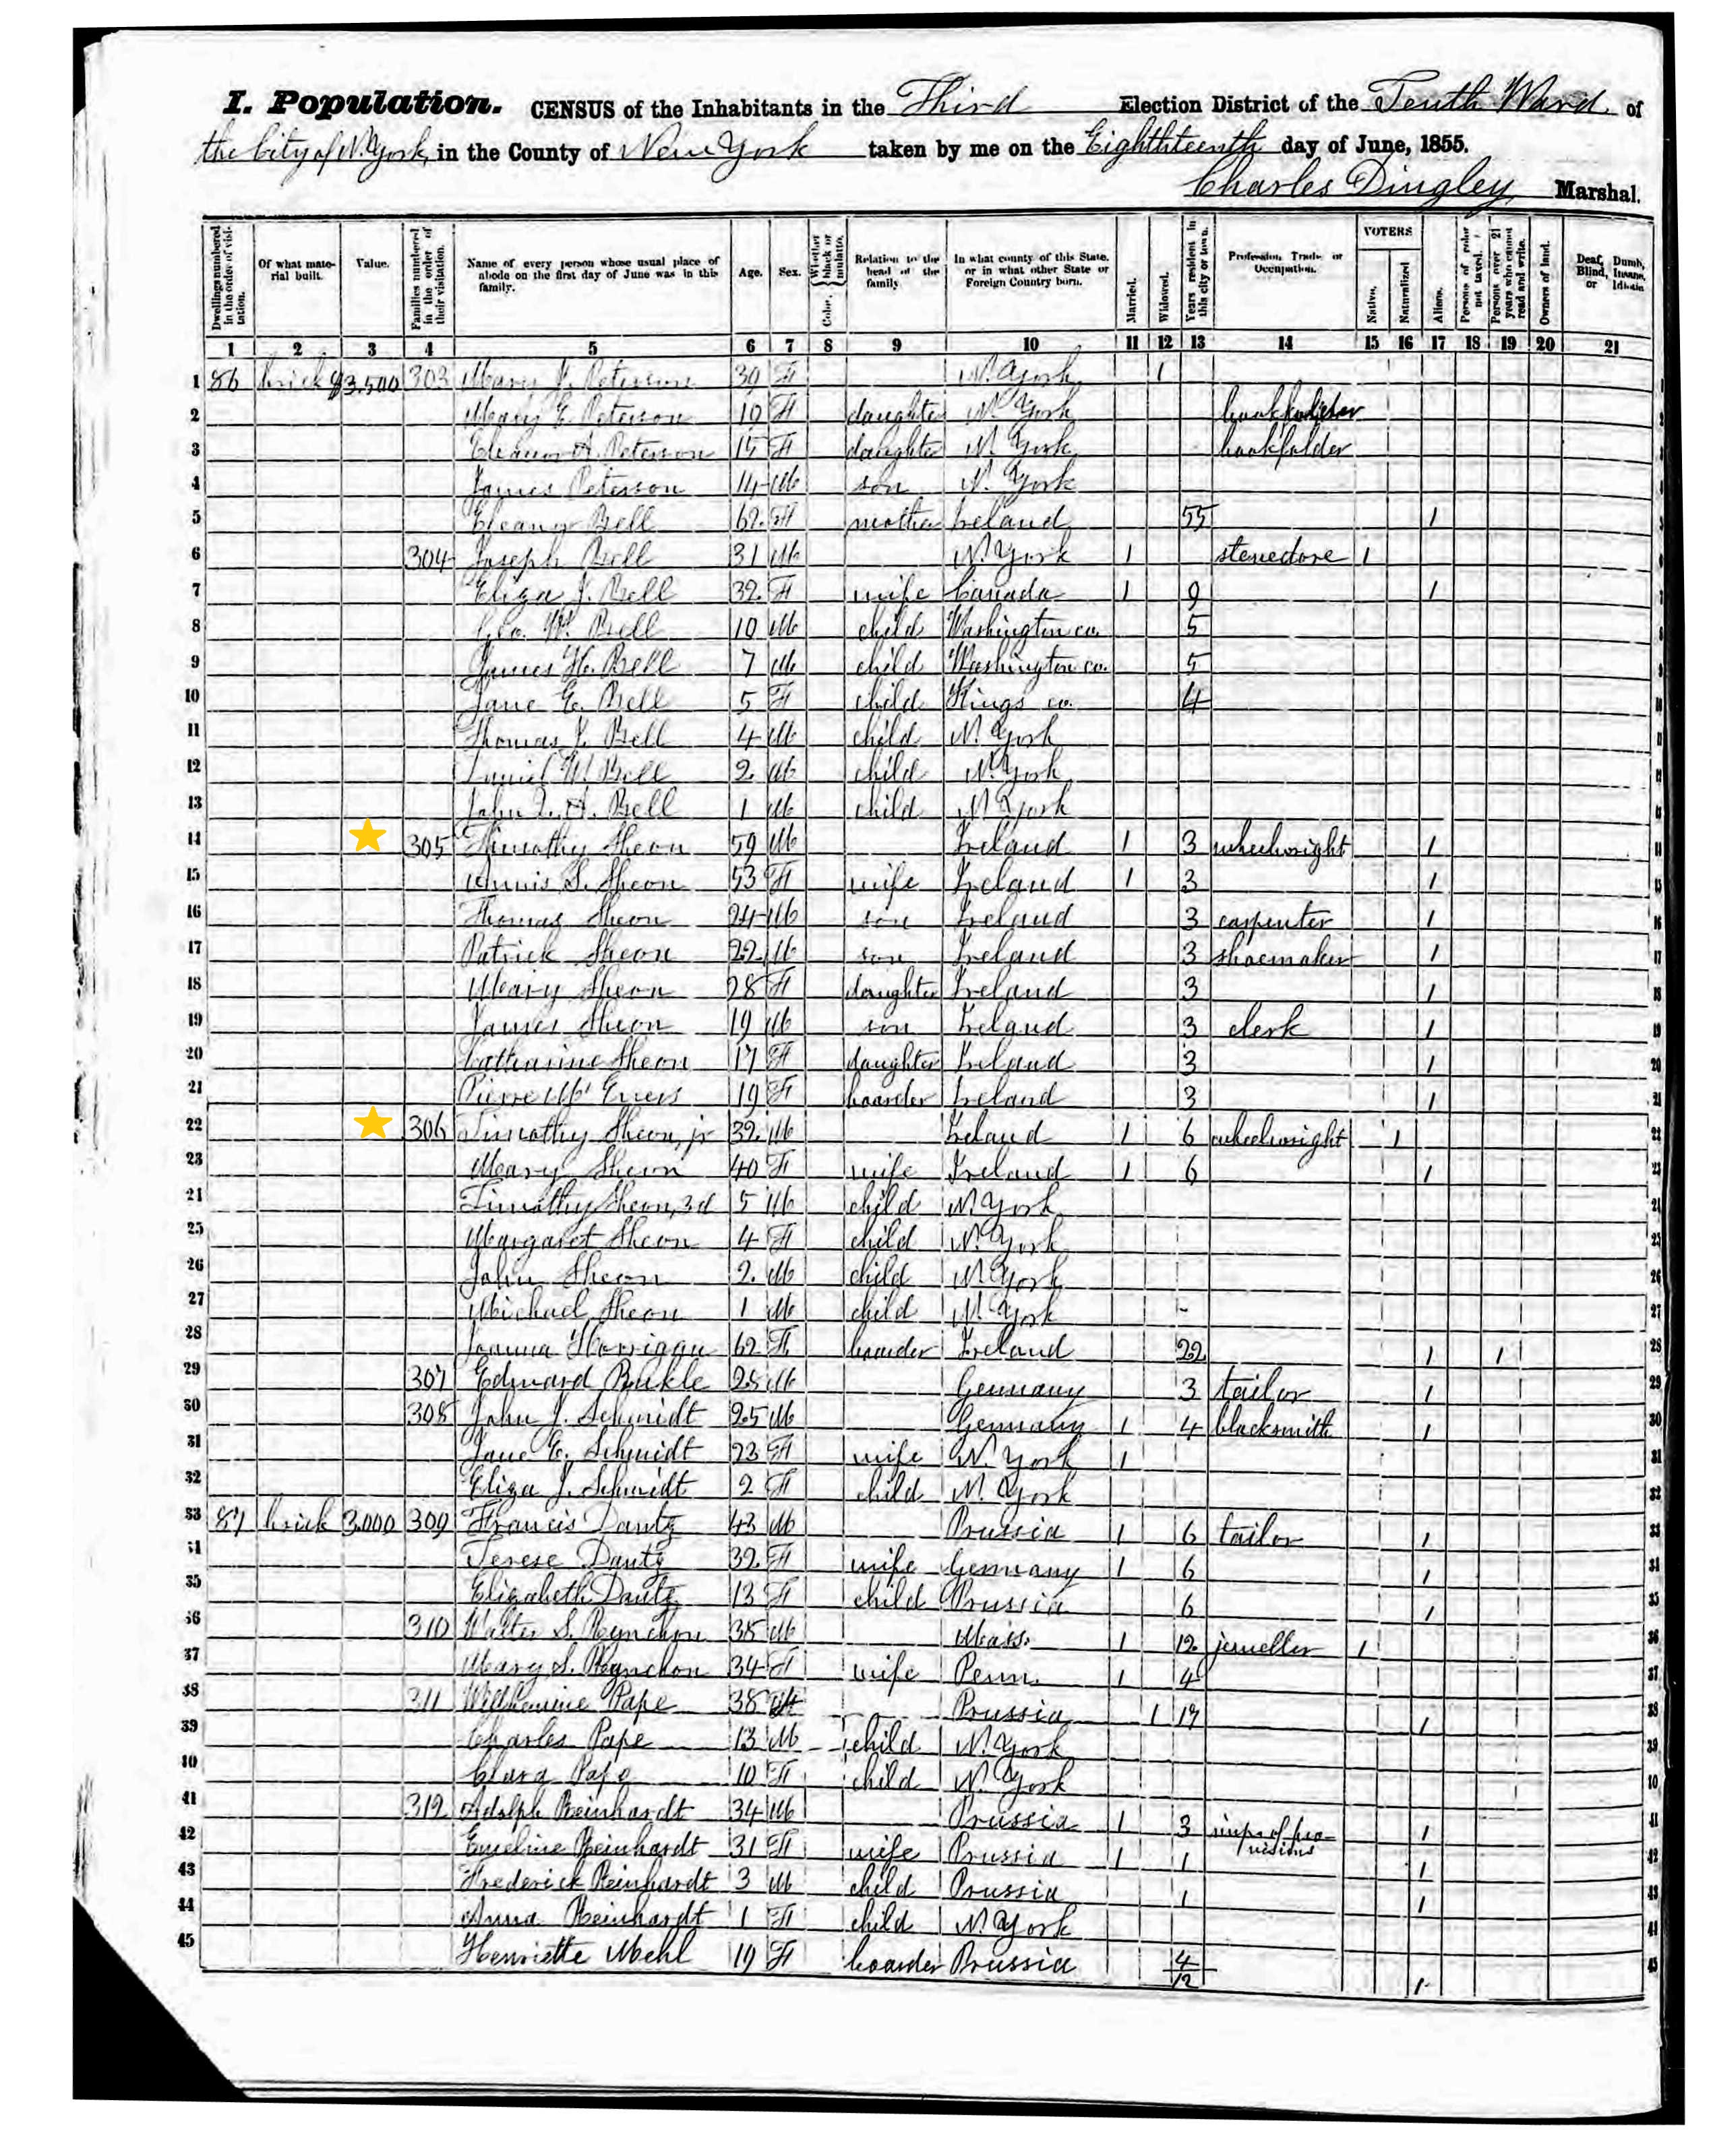 I. Population. CENSUS of the Inhabitants in the Third Election District of the Tenth Ward of
the City of N. York, in the County of New York taken by me on the Eighthteenth day of June, 1855.
Charles Dingley Marshal.
Dwellings numbered in the order of visitation. Of what material built. Value. Families numbered in the order of their visitation. Name of every person whose usual place of abode on the first day of June was in this family. Age. Sex. Color. Whether black or mulatto. Relation to the head of the family In what county of this State, or in what other State or Foreign Country born. Married. Widowed. Years resident in this city or town. Profession, Trade or Occupation. VOTERS Native. Naturalized Aliens. Persons of color not taxed. Persons over 21 years who cannot read and write. Owners of land. Deaf, Dumb, Blind, Insane, or Idiotic
1 2 3 4 5 6 7 8 9 10 11 12 13 14 15 16 17 18 19 20 21
1 86 brick $3.500 303 Mary J. Peterson 39 F N. York 1 1
2 Mary E. Peterson 19 F daughter N. York 2
3 Eleanor A. Peterson 15 F daughter N. York bookfolder 3
4 James Peterson 14 M son N. York 4
5 Bell 62 F mother Ireland 55 1 5
6 304 Joseph Bell 31 M N. York 1 stevedore 1 6
7 Eliza J. Bell 32 F wife Canada 1 9 1 7
8 Geo. W. Bell 10 M child Washington co. 5 8
9 James H. Bell 7 M child Washington co. 5 9
10 Jane E. Bell 5 F child Kings co. 4 10
11 Thomas J. Bell 4 M child N. York 11
12 Daniel W. Bell 2 M child N. York 12
13 John A. Bell 1 M child N. York 13
14 305 Timothy Sheon 59 M Ireland 1 3 wheelwright 1 14
15 S. Sheon 53 F wife Ireland 1 3 1 15
16 Thomas Sheon 24 M son Ireland 3 carpenter 1 16
17 Patrick Sheon 22 M son Ireland 3 shoemaker 1 17
18 Mary Sheon 28 F daughter Ireland 3 1 18
19 James Sheon 19 M son Ireland 3 clerk 1 19
20 Catharine Sheon 17 F daughter Ireland 3 1 20
21 19 F boarder Ireland 3 1 21
22 306 Timothy Sheon, jr 32 M Ireland 1 6 wheelwright 1 22
23 Mary Sheon 40 F wife Ireland 1 6 1 23
24 Timothy Sheon, 3d 5 M child N. York 24
25 Margaret Sheon 4 F child N. York 25
26 John Sheon 2 M child N. York 26
27 Michael Sheon 1 M child N. York - 27
28 Joanna Horrigan 62 F boarder Ireland 22 1 1 28
29 307 Edward 28 M Germany 3 tailor 1 29
30 308 John J. Schmidt 25 M Germany 1 4 blacksmith 1 30
31 Jane E. Schmidt 23 F wife N. York 1 31
32 Eliza J. Schmidt 2 F child N. York 32
33 87 brick 3.000 309 Francis Dantz 43 M Prussia 1 6 tailor 1 33
34 Terese Dantz 32 F wife Germany 1 6 1 34
35 Elizabeth Dantz 13 F child Prussia 6 1 35
36 310 Walter S. Pynchon 38 M Mass. 1 12 jeweller 1 36
37 Mary S. Pynchon 34 F wife Penn. 1 4 37
38 311 Wilhemine Pape 38 F Prussia 1 19 1 38
39 Charles Pape 13 M child N. York 39
40 Clara Pape 10 F child N. York 40
41 312 Adolph Reinhardt 34 M Prussia 1 3 1 41
42 Emeline Reinhardt 31 F wife Prussia 1 1 1 42
43 Frederick Reinhardt 3 M child Prussia 1 1 43
44 Anna Reinhardt 1 F child N. York 44
45 Henriette Mehl 19 F boarder Prussia 4/12 1 45